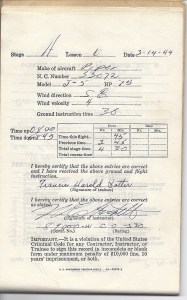 Stage A Lesson 1 Date 3-14-44
Make of aircraft Piper
N. C. Number 33072
Model J-5 HP 75
Wind direction S E
Wind velocity 4
Ground instruction time 30
Dual Solo
Hrs. Min. Hrs. Min.
Time up
Time down
This flight 45
Previous time
Total stage time 4 30
Total course time
I hereby certify that the above entries are correct
and I have received the above ground and flight
instruction.
Francis Harold
(Signature of trainee)
I hereby certify that the above entries are correct
as stated.
(Signature of instructor)
(Certif. No.) (Rating)
IMPORTANT.—It is a violation of the United States
Criminal Code for any Contractor, Instructor, or
Trainee to sign this record in incomplete or blank
form under maximum penalty of $10,000 fine, 10
years' imprisonment, or both.